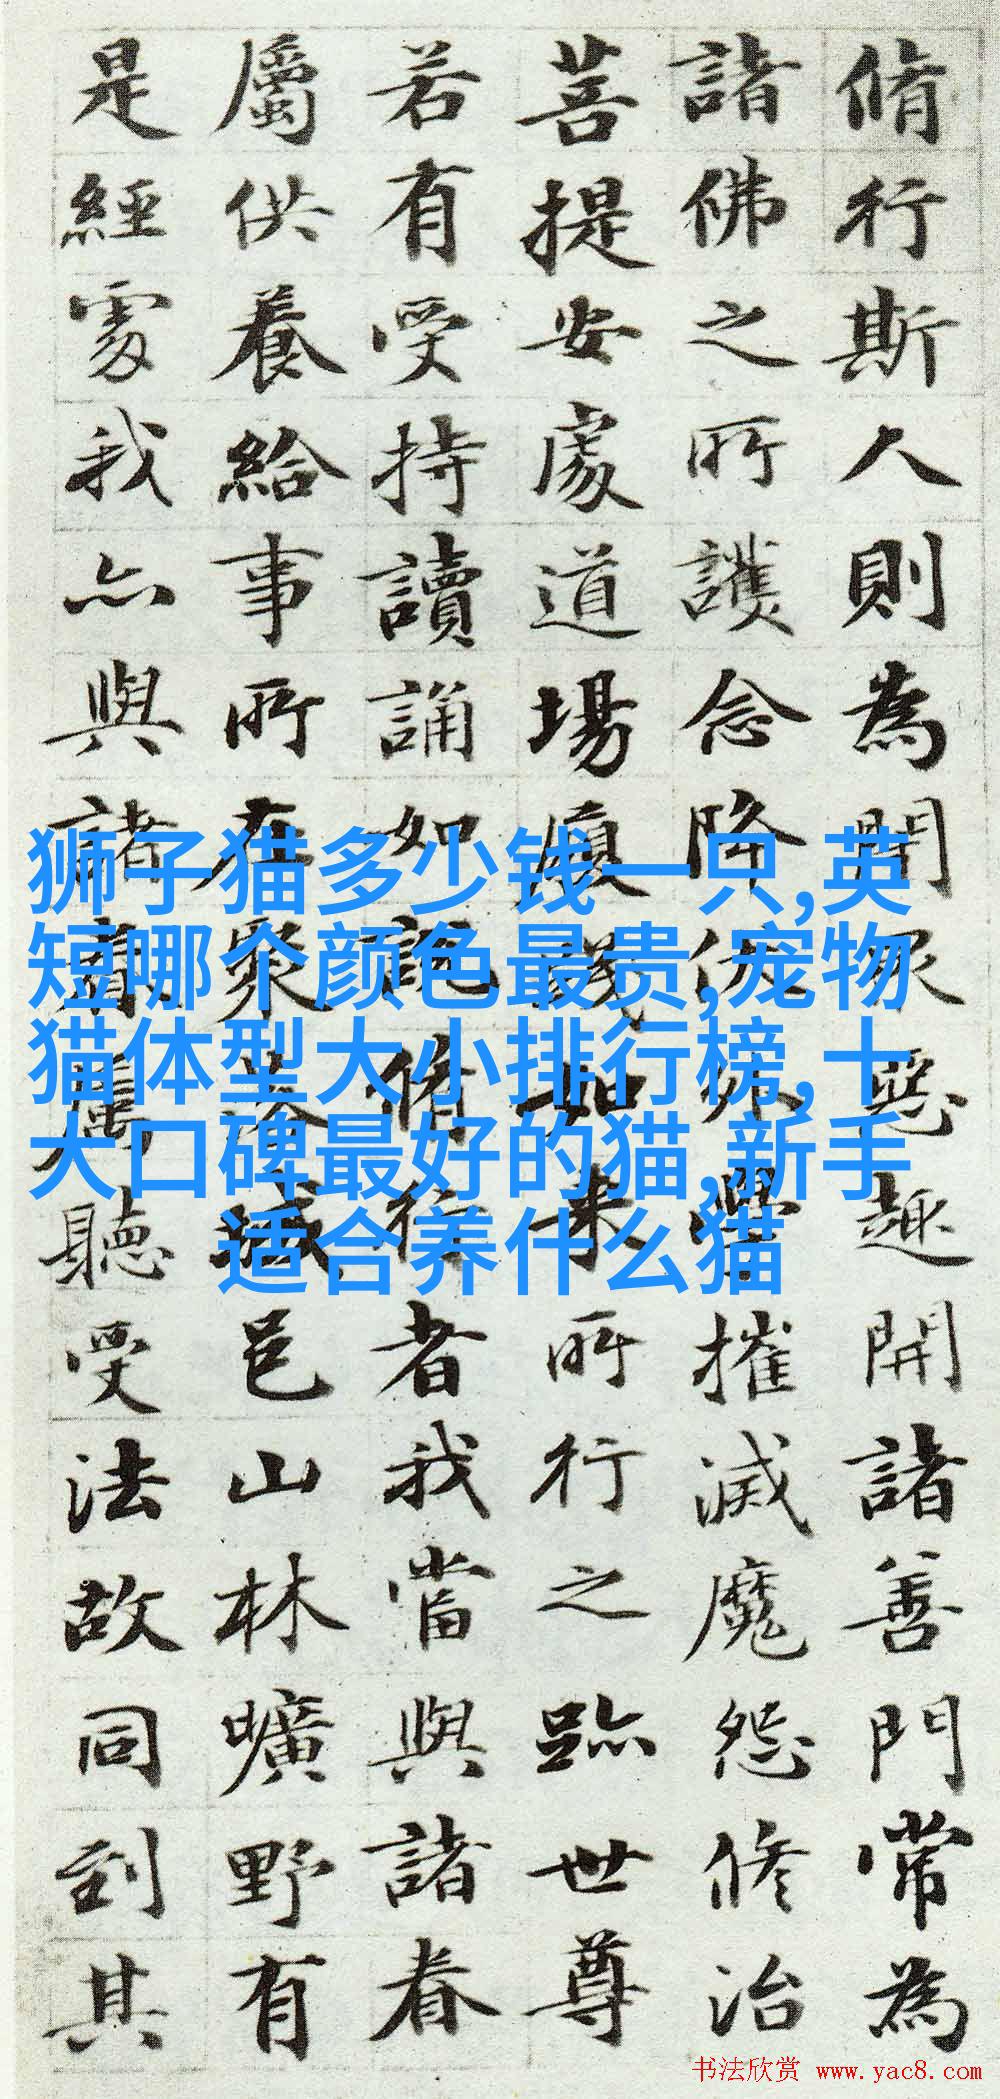 脩行斯人則為閇眾惡趣開諸善門常為
諸佛之所護念降伏外學摧滅魔怨修治
菩提安處道場履踐如來所行之跡世尊
若有受持讀誦如說脩行者我當與諸眷
屬供養給事所在聚落城邑山林曠野有
是經處我亦與諸眷屬聽受法故同到其
狮子猫多少钱一只,英
短哪个颜色最贵,宠物
猫体型大小排行榜,十
大口碑最好的猫,新手
适合养什么猫
书法欣赏 www.yac8.com